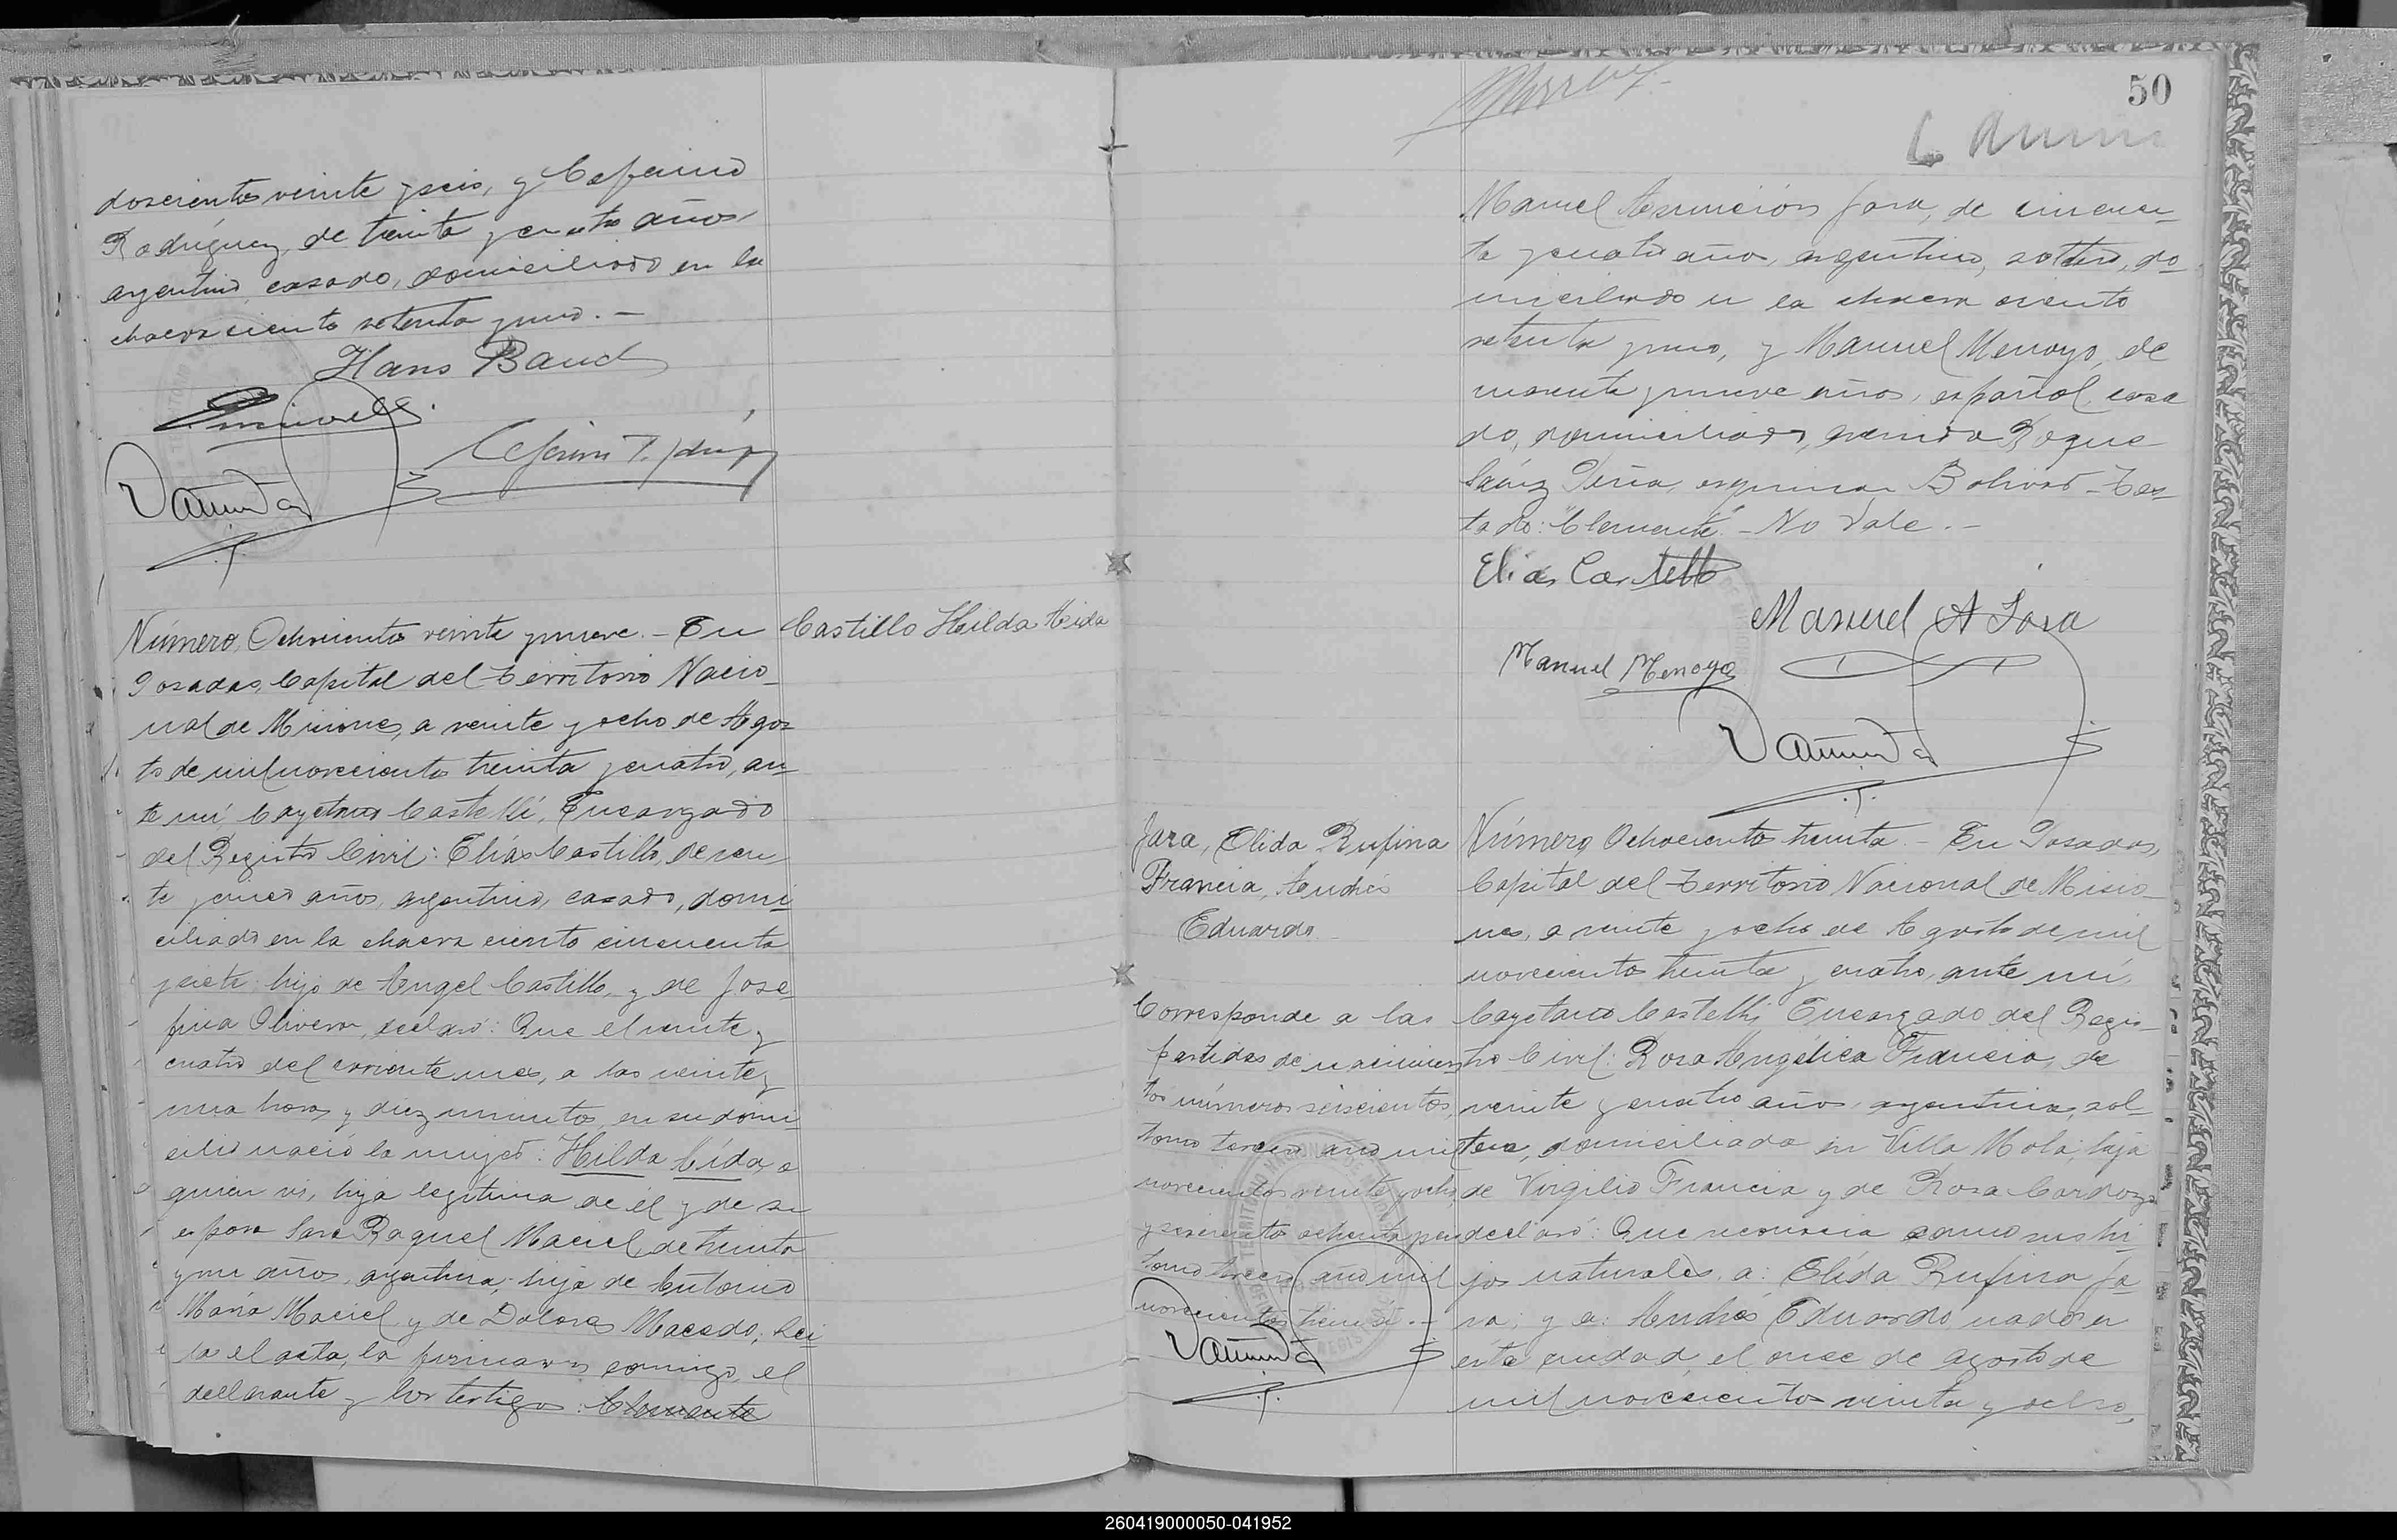 doscientos veinte y seis, y Ceferino
Rodríguez, de treinta y cuatro años,
argentino, casado, domiciliado en la
chacra ciento setenta y uno. -
Hans Baud
Número Ochocientos veinte y nueve. - En
Posadas, Capital del Territorio Nacio-
nal de Misiones, a veinte y ocho de Agos-
to de mil novecientos treinta y cuatro, an-
te mí, Cayetano Castelli, Encargado
del Registro Civil: Elías Castillo, de vein
te y cinco años, argentino, casado, domi-
ciliado en la chacra ciento cincuenta
y siete; hijo de Angel Castillo, y de Jose-
fina Olivera, declaró: Que el veinte y
cuatro del corriente mes, a las veinte y
una horas y diez minutos, en su domi-
cilio nació la mujer: Hilda Aída, a
quien vi, hija legítima de él y de su
esposa Sara Raquel Maciel, de treinta
y un años, argentina; hija de Antonio
María Maciel y de Dolores Macedo; Leí-
da el acta, la firmaron conmigo, el
declarante y los testigos: Clemente
Castillo Hilda Aida
50
Manuel Asunción Jara, de cincuen-
ta y cuatro años, argentino, soltero, do-
miciliado en la chacra ciento
setenta y uno, y Manuel Menoyo, de
cuarenta y nueve años, español, casa
do, domiciliado, avenida Roque
Sáenz Peña, esquina Bolívar - Tes-
tado: "Clemente" - No Vale. -
Elías Castillo
Manuel A Jara
Manuel Menoyo
Jara, Elida Rufina
Francia, Andrés
Eduardo
Corresponde a las
partidas de nacimien-
tos números seiscientos,
tomo tercero año mil
novecientos veinte y ocho,
tomo tercero año mil
novecientos treinta. -
Número Ochocientos treinta. - En Posadas,
Capital del Territorio Nacional de Misio-
nes, a veinte y ocho de Agosto de mil
novecientos treinta y cuatro, ante mí,
Cayetano Castelli, Encargado del Regis-
tro Civil: Rosa Angélica Francia, de
veinte y cuatro años, argentina, sol-
tera, domiciliada en Villa Mola; hija
de Virgilio Francia y de Rosa Cardozo
declaró: Que reconocía como sus hi-
jos naturales, a: Elida Rufina Ja-
ra; y a: Andrés Eduardo, nacidos en
esta ciudad, el once de agosto de
mil novecientos veinte y ocho,
260419000050-041952